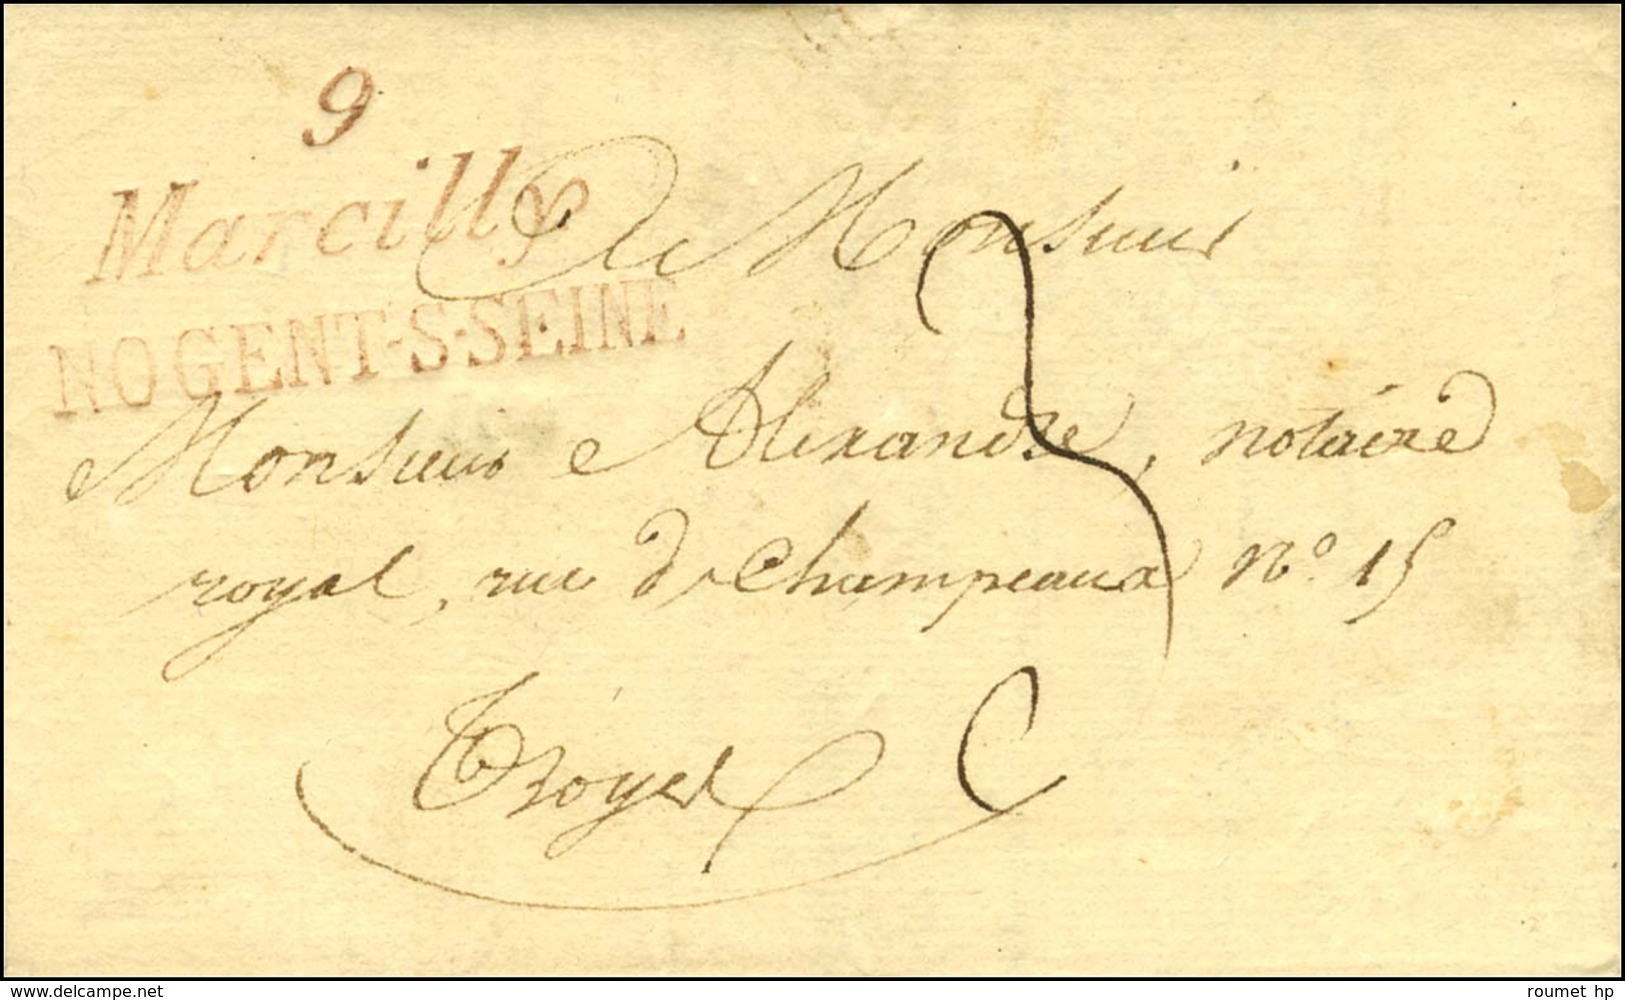 9
Marcilly
NOGENT-S-SEINE
A Monsieur
Monsieur Alexandre, notaire
royal, rue de Champeaux N.º 15
Troyes
3
www.delcampe.net
roumet hp